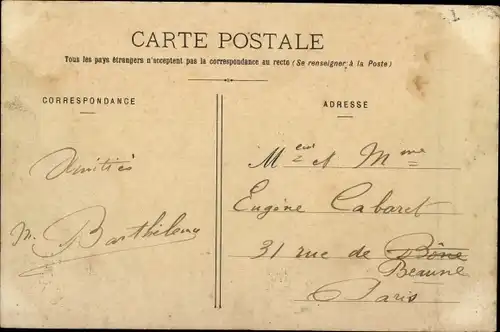 CARTE POSTALE
Tous les pays étrangers n'acceptent pas la correspondance au recto (Se renseigner à la Poste)
CORRESPONDANCE
ADRESSE
Meur et Mme
Amitiés
Eugène Cabaret
M. Barthélemy
31 rue de Bône
Beaune
Paris